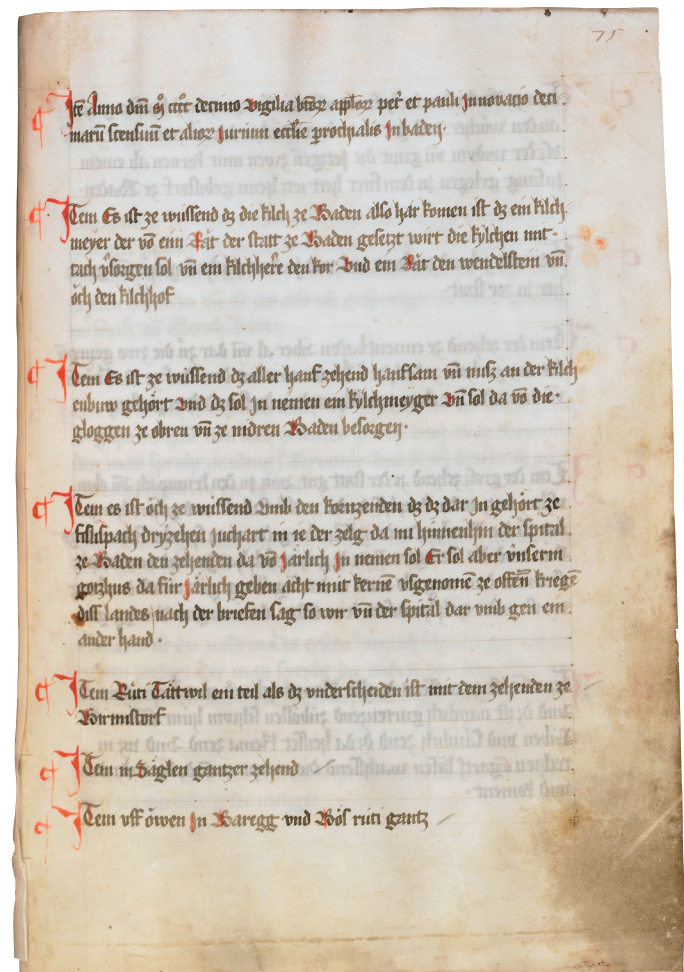 75
Itē Anno dm̄ mͦ ccccͦ decimo vigilia btōꝝ applōꝝ petͥ et pauli Innovacio deci
marū scensuū et alioꝝ iurium ecclie ꝑrochialis In baden
Item Es ist ze wuͤssend dz die kilch ze Baden also har komen ist dz ein kilch
meyer der vō eim Rät der statt ze Baden gesetzt wirt die kylchen mit
tach v̓sorgen sol vn̄ ein kilchhere den kor Vnd ein Rät den wendelstein vn̄
öch den kilchhof
Item Es ist ze wuͤssend dz aller hanf zehend hanfsam vn̄ nusz an der kilch
enbuw gehört Vnd dz sol Jn nemen ein kylchmeyger Vn̄ sol da vō die
gloggen ze obren vn̄ ze nidren Baden besorgen
Item es ist öch ze wuͤssend vmb den kornzenden dz dz dar Jn gehört ze
fislispach dryzehen juchart in ie der zelg da nu hinnenhin der spital
ze Baden den zehenden da vō Järlich Jn nemen sol Er sol aber vnserm
gotzhus da für Järlich geben acht muͤt kernē vsgenomē ze offen kriegē
diss landes nach der briefen sag so wir vn̄ der spital dar vmb gen ein
ander hand
Item Ruͤti Tättwil ein teil als dz vnderscheiden ist mit dem zehenden ze
Birmistorf
Item in Häglen gantzer zehend
Item vff öwen Jn Baregg vnd Bös ruͤti gantz